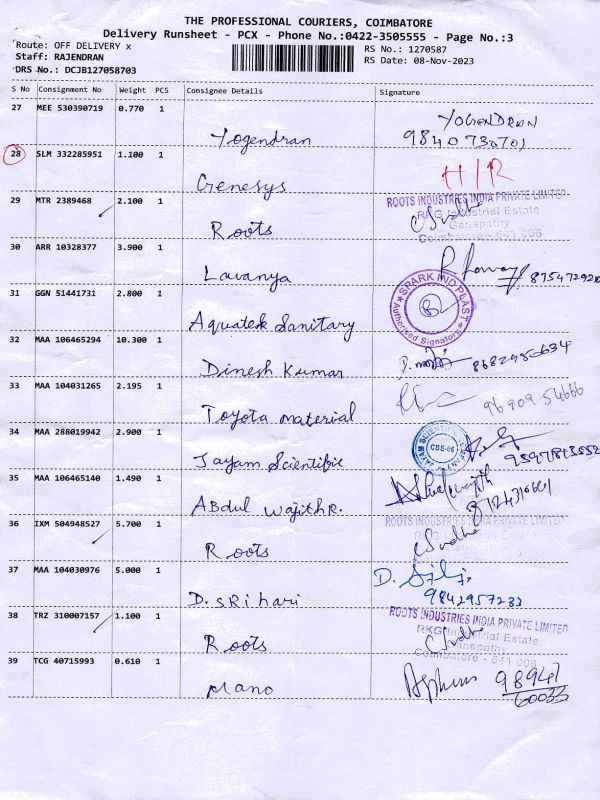 THE PROFESSIONAL COURIERS, COIMBATORE
Delivery Runsheet - PCX - Phone No.:0422-3505555 - Page No.:3
Route: OFF DELIVERY x
RS No.: 1270587
Staff: RAJENDRAN
RS Date: 08-Nov-2023
DRS No.: DCJB127058703
S No Consignment No Weight PCS Consignee Details Signature
27 MEE 530390719 0.770 1
Yogendran YOGENDRAN
9840730701
28 SLM 332285951 1.100 1
Genesys H/R
29 MTR 2389468 2.100 1
Roots ROOTS INDUSTRIES INDIA PRIVATE LIMITED
RKG Industrial Estate
Ganapathy
Coimbatore - 641 006
30 ARR 10328377 3.900 1
Lavanya
31 GGN 51441731 2.800 1
Aquatek Sanitary SPARK IND PLAST
Authorised Signatory
32 MAA 106465294 10.300 1
Dinesh Kumar
33 MAA 104031265 2.195 1
Toyota material 9690954666
34 MAA 288019942 2.900 1
Jayam Scientific JAYAM SCIENTIFIC COMPANY
35 MAA 106465140 1.490 1
Abdul Wajith R.
36 IXM 504948527 5.700 1
Roots ROOTS INDUSTRIES INDIA PRIVATE LIMITED
37 MAA 104030976 5.000 1
D. SRihari D.
9842957233
38 TRZ 310007157 1.100 1
Roots ROOTS INDUSTRIES INDIA PRIVATE LIMITED
RKG Industrial Estate
Ganapathy
Coimbatore - 641 006
39 TCG 40715993 0.610 1
Mano 98947
60033